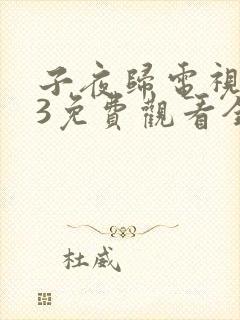 子夜歸電視
3免費觀看全
杜威